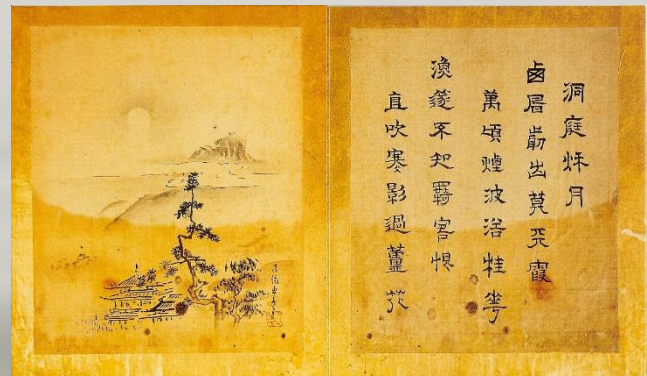 洞庭秌月
卤風剪出莫天霞
萬頃煙波浴桂華
漁篴不知羈客恨
直吹寒影過蘆花